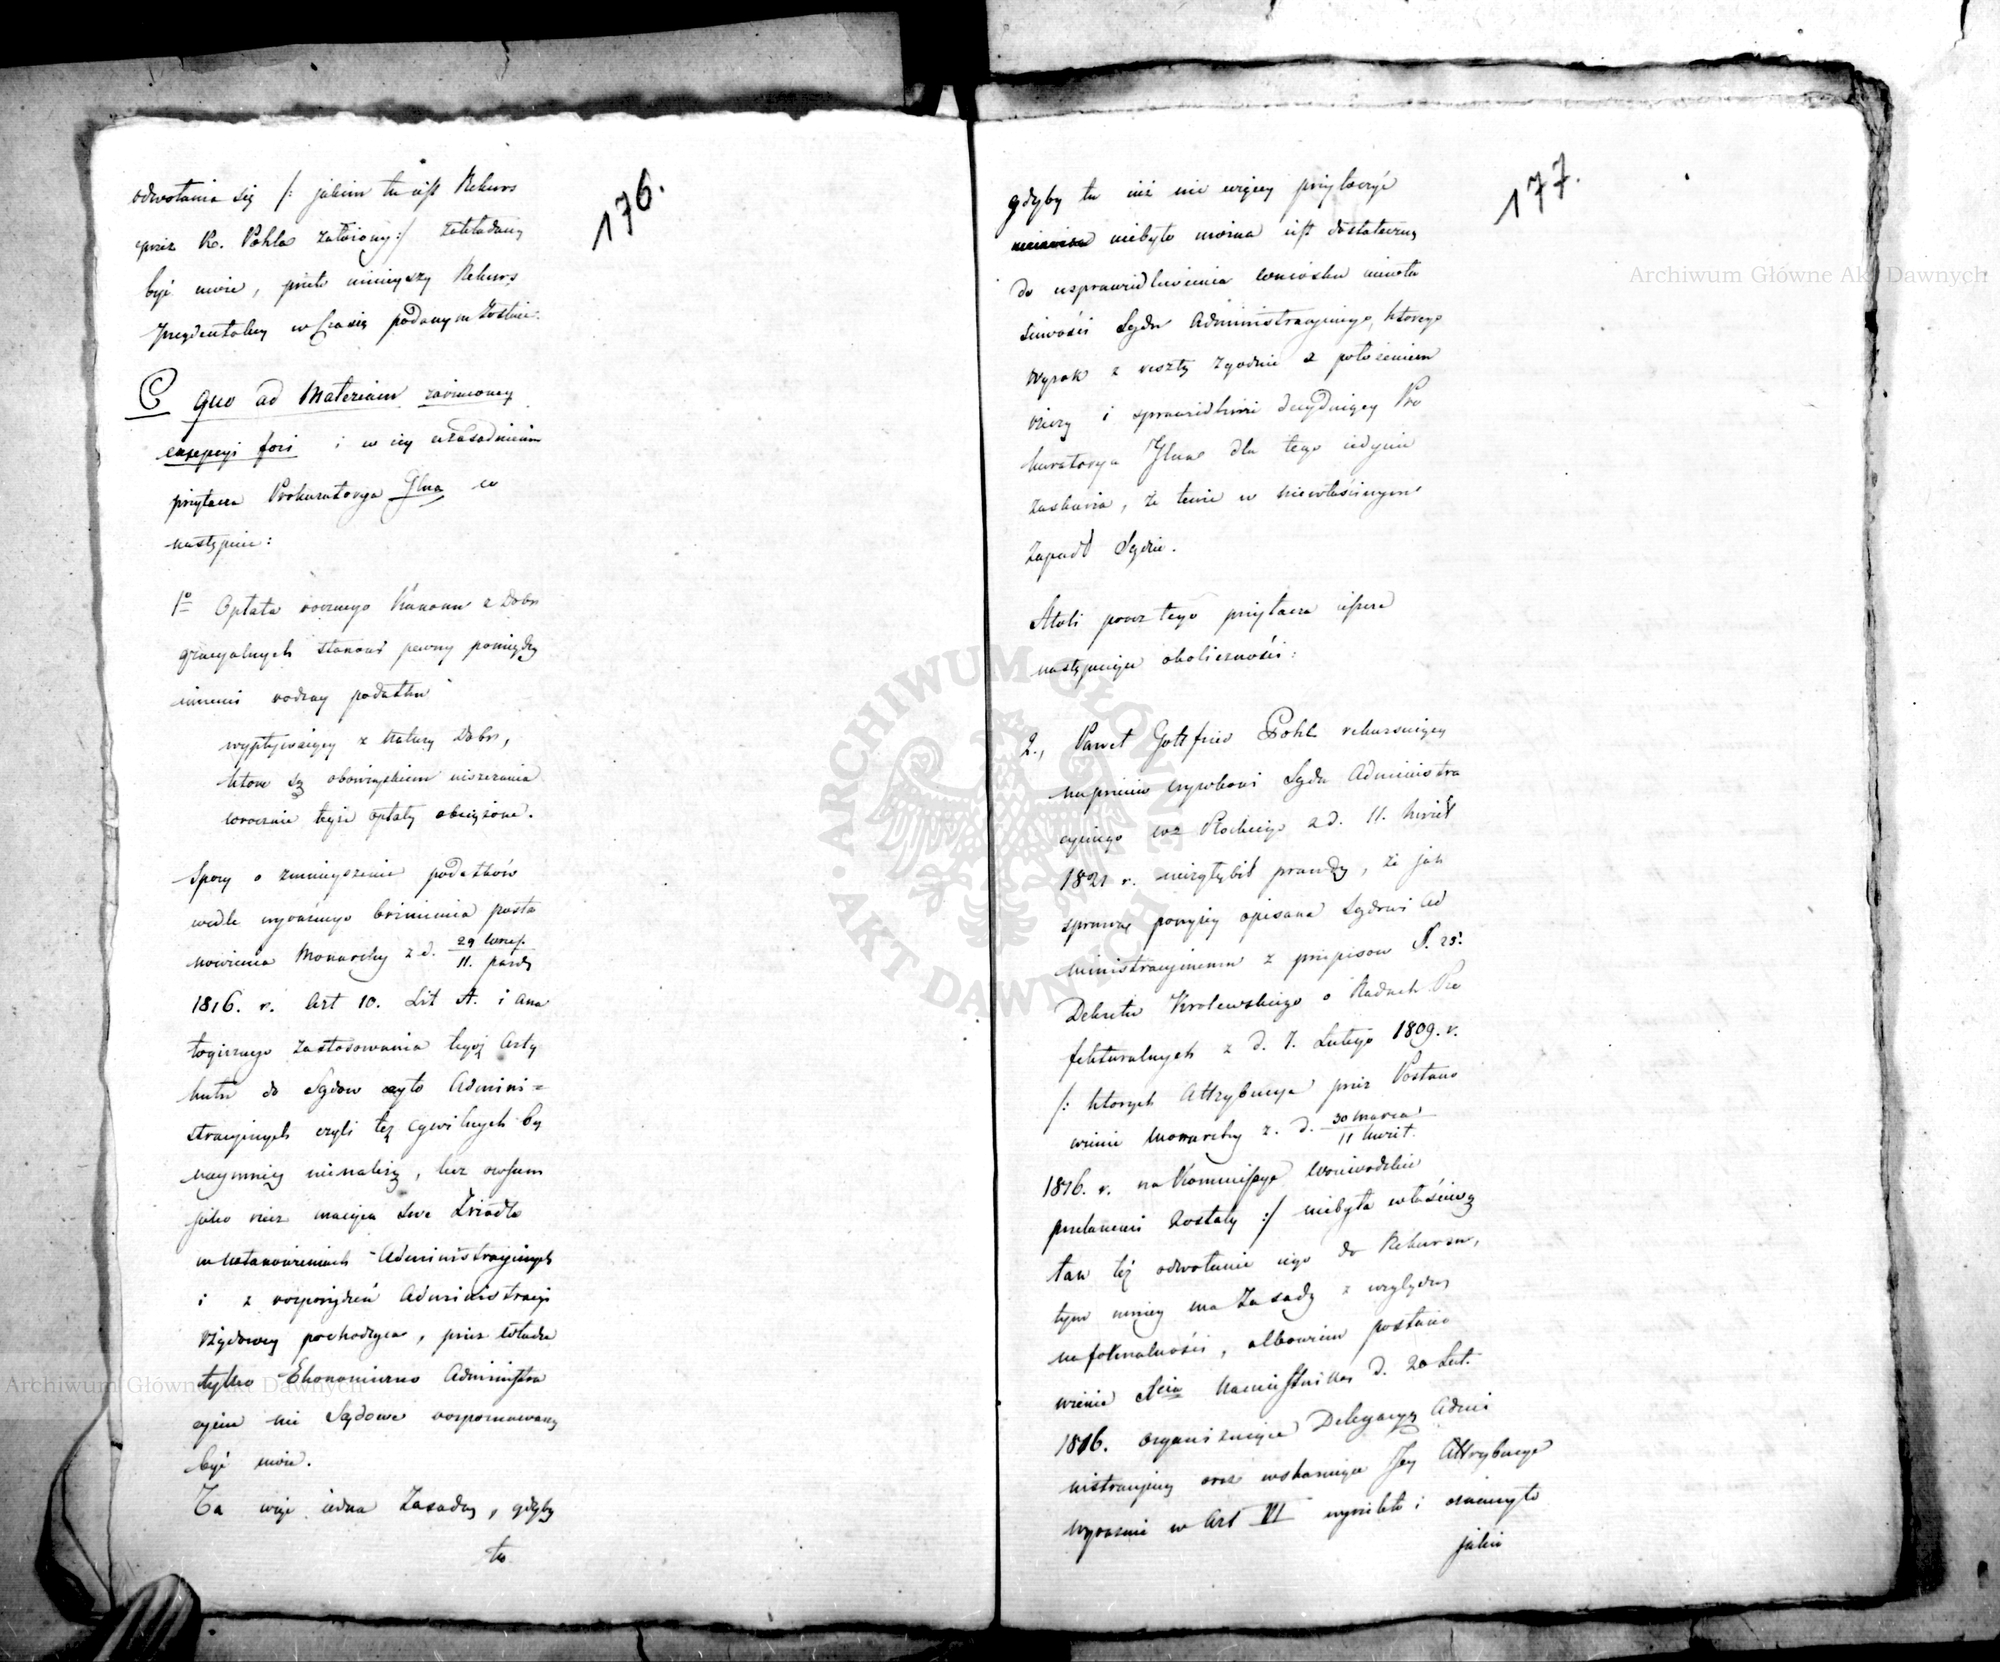 176.
odwołania się /: jakim tu iest Rekurs
przez R. Pohla założony :/ zakładany
być może, przeto ninieyszy Rekurs
w Czasie podanym
C quo ad Materiam zaniesioney
excepcyi fori i w iey uzasadnieniu
przytacza Prokuratorya Glna co
następuie:
1o Opłata rocznego Kanonu z Dobr
gracyalnych stanowi pewny pomiędzy
innemi rodzay podatku
wypływaiący z Natury Dobr,
które są obowiązkiem uiszczania
corocznie teyże opłaty obciążone.
Spory o zmnieyszenie podatków
wedle wyraźnego brzmienia posta
nowienia Monarchy z d. 29 Wrześ. / 11. paźdz
1816. r. Art 10. Lit A. i ana
logicznego zastosowania tegoż Arty
kułu do Sądow czyto Admini=
stracyinych czyli też Cywilnych by
naymniey nienależą, lecz owszem
jako rzecz maiąca swe Źródło
w ustanowieniach Administracyinych
i z rozporządzeń Administracyi
rządowey pochodząca, przez Władze
tylko Ekonomiczno Administra
cyine nie Sądowe rozpoznawaną
być może.
Ta więc iedna Zasada, gdyby
tu
177.
gdyby tu iuż nic więcey przytoczyć
niebyło można iest dostateczną
do usprawiedliwienia wniosku niewła
ściwości Sądu Administracyinego, którego
Wyrok z reszty zgodnie z położeniem
rzeczy i sprawiedliwie decyduiący Pro
kuratorya Glna dla tego iedynie
zaskarża, że tenże w niewłaściwym
zapadł Sądzie.
Atoli procz tego przytacza ieszcze
następuiące okoliczności:
2., Paweł Gottfried Pohl rekursuiący
naprzeciw wyrokowi Sądu Administra
cyinego Wa Płockiego z d. 11. kwiet
1821 r. niezgłębił prawdy, że jak
sprawa powyżey opisana Sądowi Ad
ministracyinemu z przepisow §. 25.
Dekretu Krolewskiego o Radach Pre
fekturalnych z d. 7. Lutego 1809. r.
/: ktorych Attrybucye przez Postano
wienie Monarchy z. d. 30 Marca / 11 kwiet.
1816. r. na Kommissye Woiewodzkie
przelanemi zostały :/ niebyła właściwą
tak też odwołanie iego do Rekursu,
tym mniey ma Zasadę z względu
na formalności, albowiem postano
wienie Xcia Namiestnika d. 20 Lut.
1816. organizuiące Delegacyą Admi
nistracyiną oraz wskazuiące Jey Attrybucye
wyraźnie w Art VI wyrzekło i oznaczyło
jakie
Archiwum Główne Akt Dawnych
Archiwum Główne Akt Dawnych
ARCHIWUM GŁÓWNE • AKT DAWNYCH •